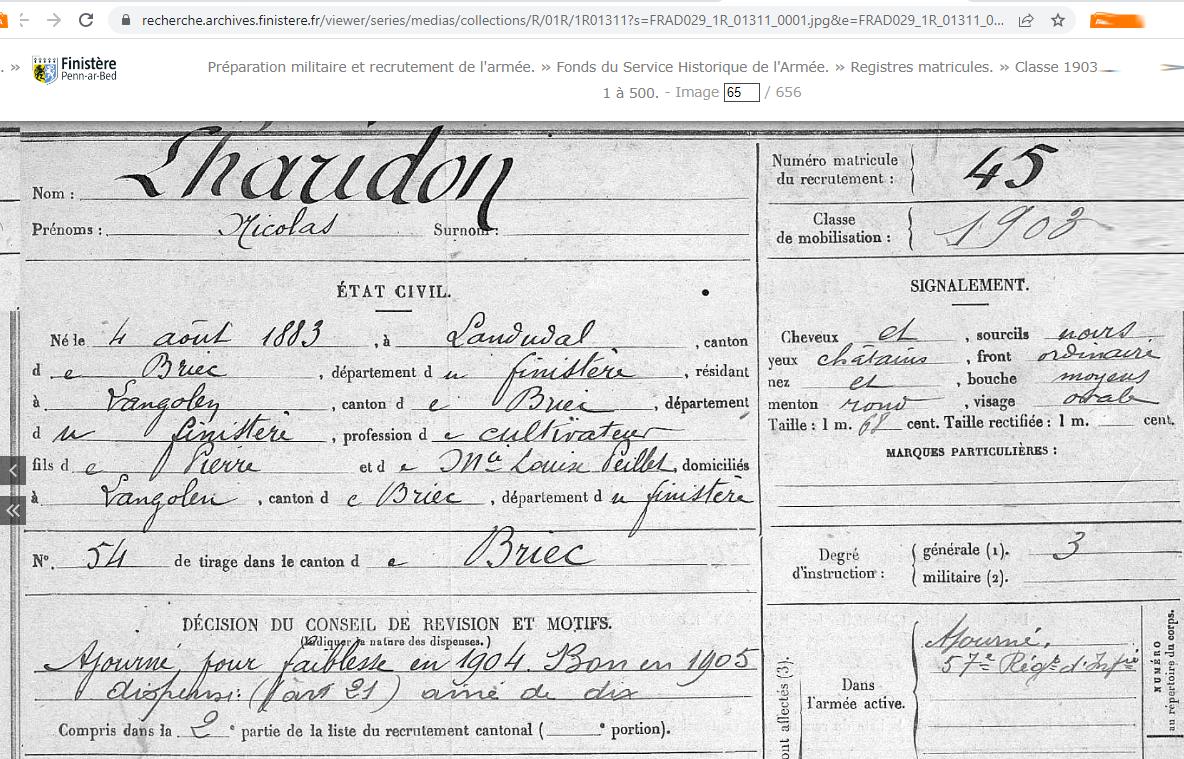 recherche.archives.finistere.fr/viewer/series/medias/collections/R/01R/1R01311?s=FRAD029_1R_01311_0001.jpg&e=FRAD029_1R_01311_0...
Finistère
Penn-ar-Bed
. » Préparation militaire et recrutement de l'armée. » Fonds du Service Historique de l'Armée. » Registres matricules. » Classe 1903
1 à 500. - Image 65 / 656
Nom : Lharidon
Prénoms : Nicolas Surnom :
Numéro matricule du recrutement : 45
Classe de mobilisation : 1903
ÉTAT CIVIL.
Né le 4 août 1883, à Landudal, canton
de Briec, département du finistère, résidant
à Langolen, canton de Briec, département
du finistère, profession de cultivateur
fils de Pierre et de Mie Louise Peillet, domiciliés
à Langolen, canton de Briec, département du finistère
N°. 54 de tirage dans le canton de Briec
DÉCISION DU CONSEIL DE REVISION ET MOTIFS.
(Indiquer la nature des dispenses.)
Ajourné pour faiblesse en 1904. Bon en 1905
dispensé: (art 21) aîné de dix
Compris dans la 2e partie de la liste du recrutement cantonal ( e portion).
SIGNALEMENT.
Cheveux et, sourcils noirs
yeux châtains, front ordinaire
nez et, bouche moyens
menton rond, visage ovale
Taille : 1 m. 68 cent. Taille rectifiée : 1 m. cent.
MARQUES PARTICULIÈRES :
Degré d'instruction : générale (1). 3
militaire (2).
Dans l'armée active.
Ajourné.
57e Régt d'Infie
ont affectés (3).
NUMÉRO
au répertoire du corps.